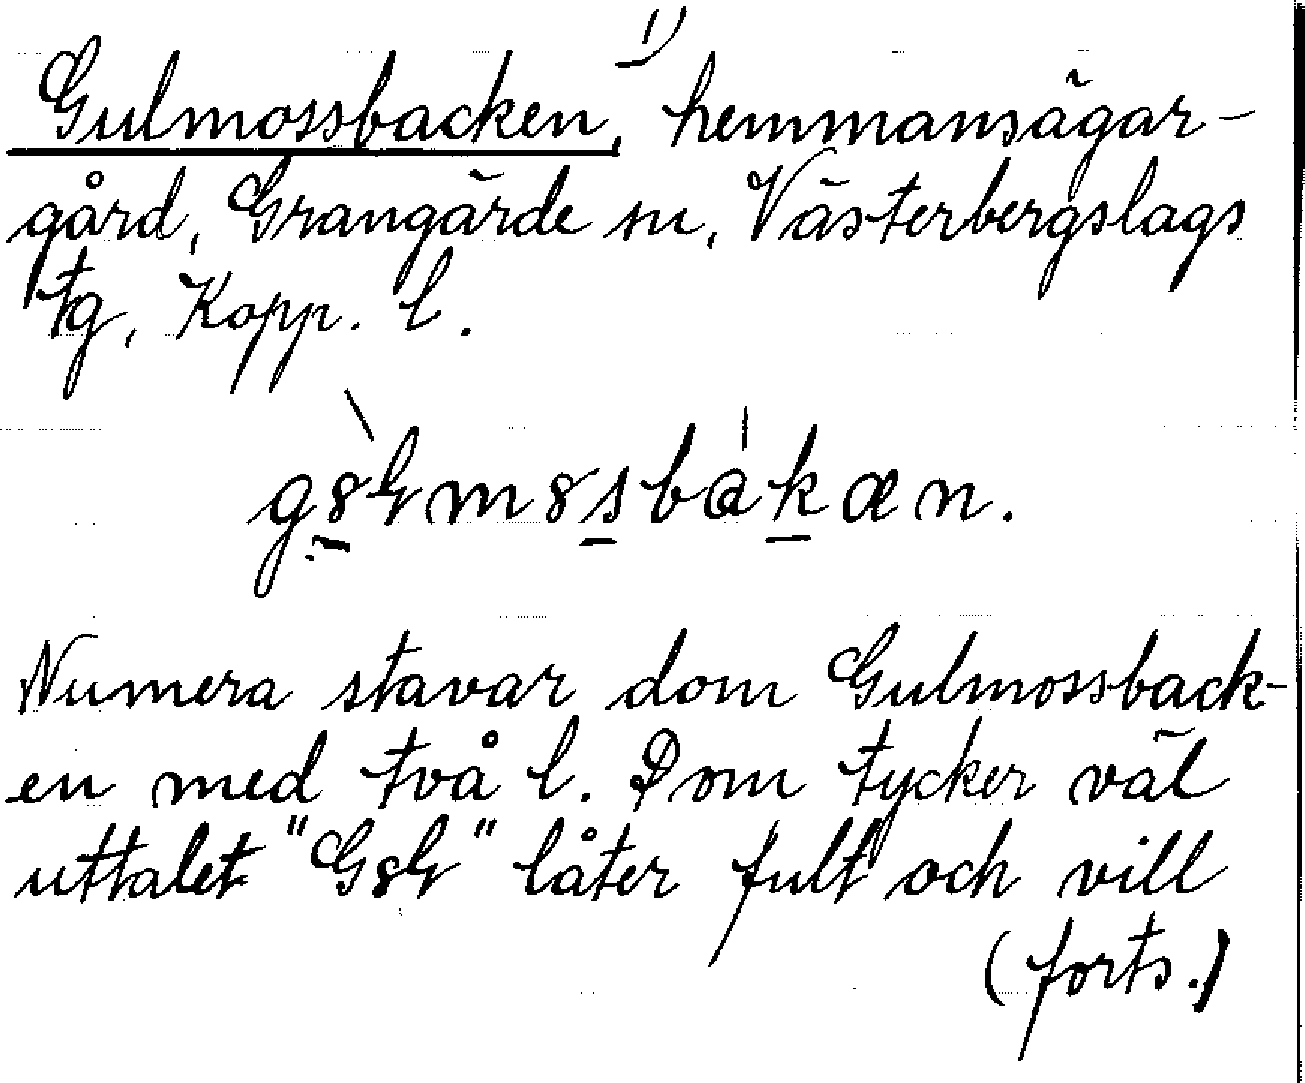 Gulmossbacken, 1) hemmansägar-
gård, Grangärde sn, Västerbergslags
tg, Kopp. l.
Numera stavar dom Gulmossback-
en med två l. Dom tycker väl
uttalet låter fult och vill
(forts.)